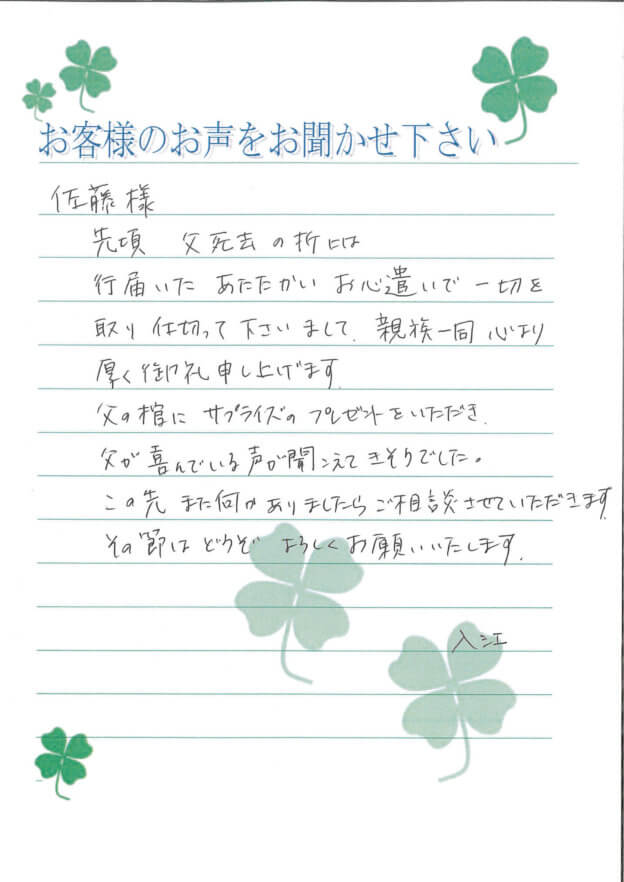 お客様のお声をお聞かせ下さい
佐藤様
先頃 父死去の折には
行届いた あたたかい お心遣いで 一切を
取り仕切って下さいまして、親族一同 心より
厚く御礼申し上げます
父の棺に サプライズの プレゼントをいただき、
父が喜んでいる声が聞こえてきそうでした。
この先 また何かありましたらご相談させていただきます
その節は どうぞ よろしくお願いいたします。
入江